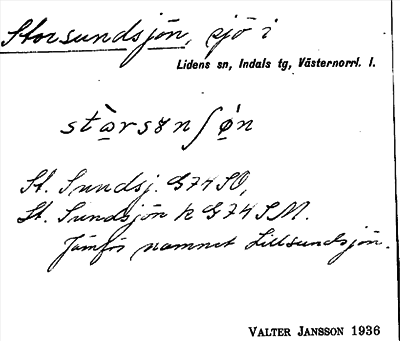 Storsundsjön, sjö i
Lidens sn, Indals tg, Västernorrl. l.
stàrsunʃǿn
St. Sundsj. G74SO,
St. Sundsjön k G74SM.
Jämför namnet Lillsundsjön.
VALTER JANSSON 1936